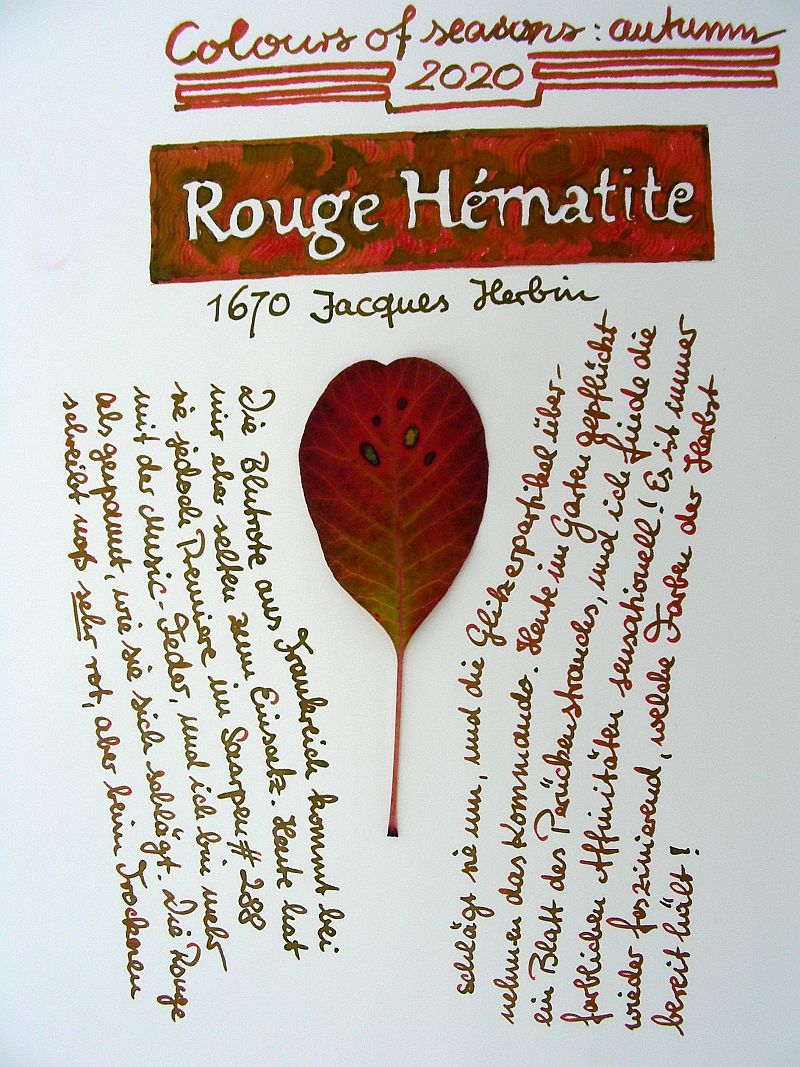 Colours of seasons: autumn
2020
Rouge Hématite
1670 Jacques Herbin
Die Blutrote aus Frankreich kommt bei
mir eher selten zum Einsatz. Heute hat
sie jedoch Premiere im Saarpen # 288
mit der Music-Feder, und ich bin mehr
als gespannt, wie sie sich schlägt. Die Rouge
schreibt naß sehr rot, aber beim Trocknen
schlägt sie um, und die Glitzerpartikel über-
nehmen das Kommando. Heute im Garten gepflückt
ein Blatt des Perückenstrauchs, und ich finde die
farblichen Affinitäten sensationell! Es ist immer
wieder faszinierend, welche Farben der Herbst
bereit hält!